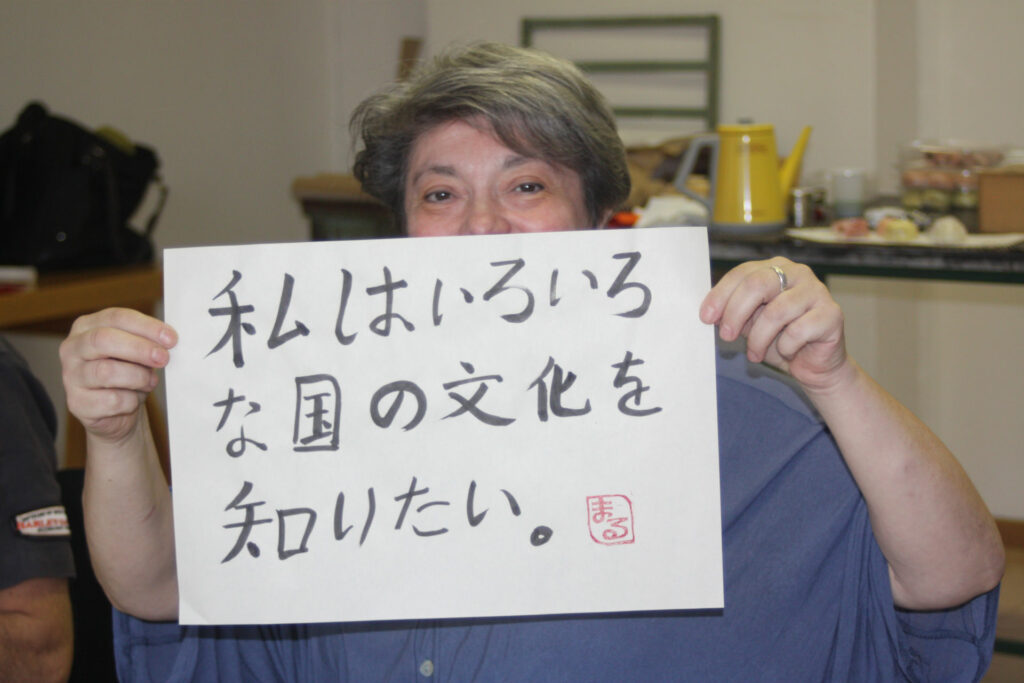 私はいろいろ
な国の文化を
知りたい。
まる